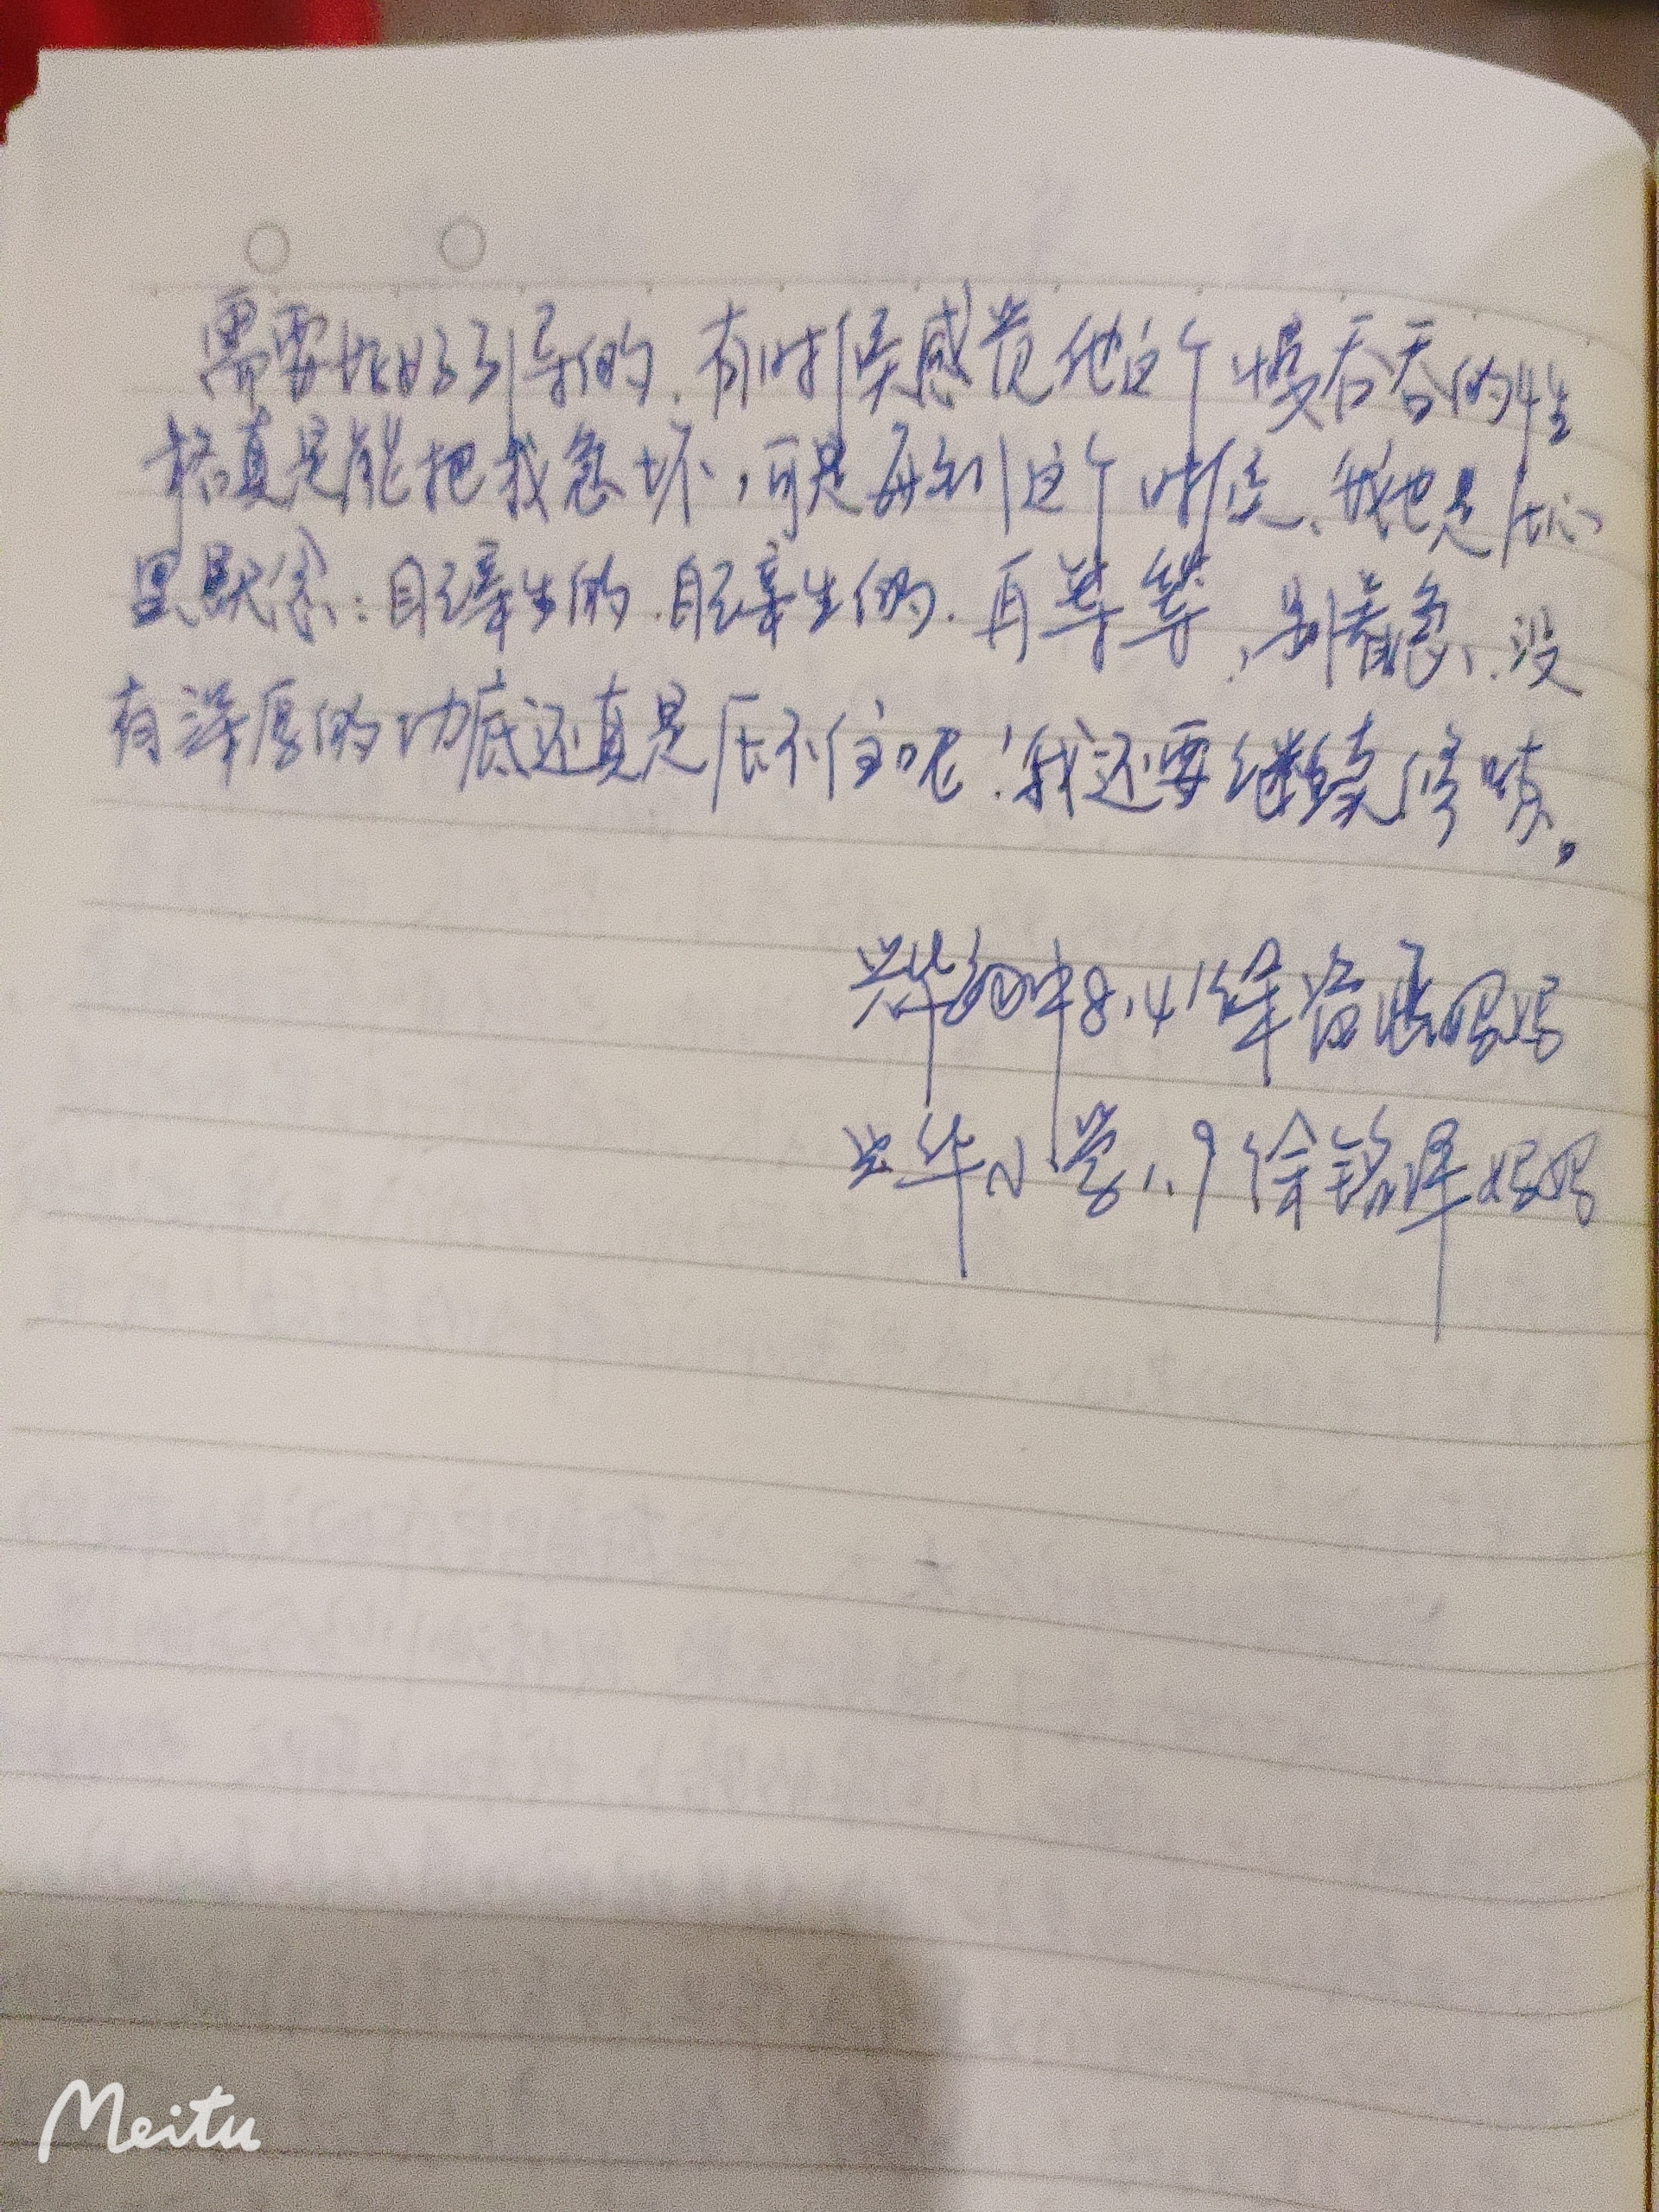 需要好好引导的.有时候感觉他这个慢吞吞的性
格真是能把我急坏,可是每到这个时候、我也是在心
里默念:自己亲生的.自己亲生的.再等等,别着急、没
有深厚的功底还真是压不住呢!我还要继续修啧。
兴华初中8.4徐 妈妈
兴华小学1.9徐铭泽妈妈
Meitu